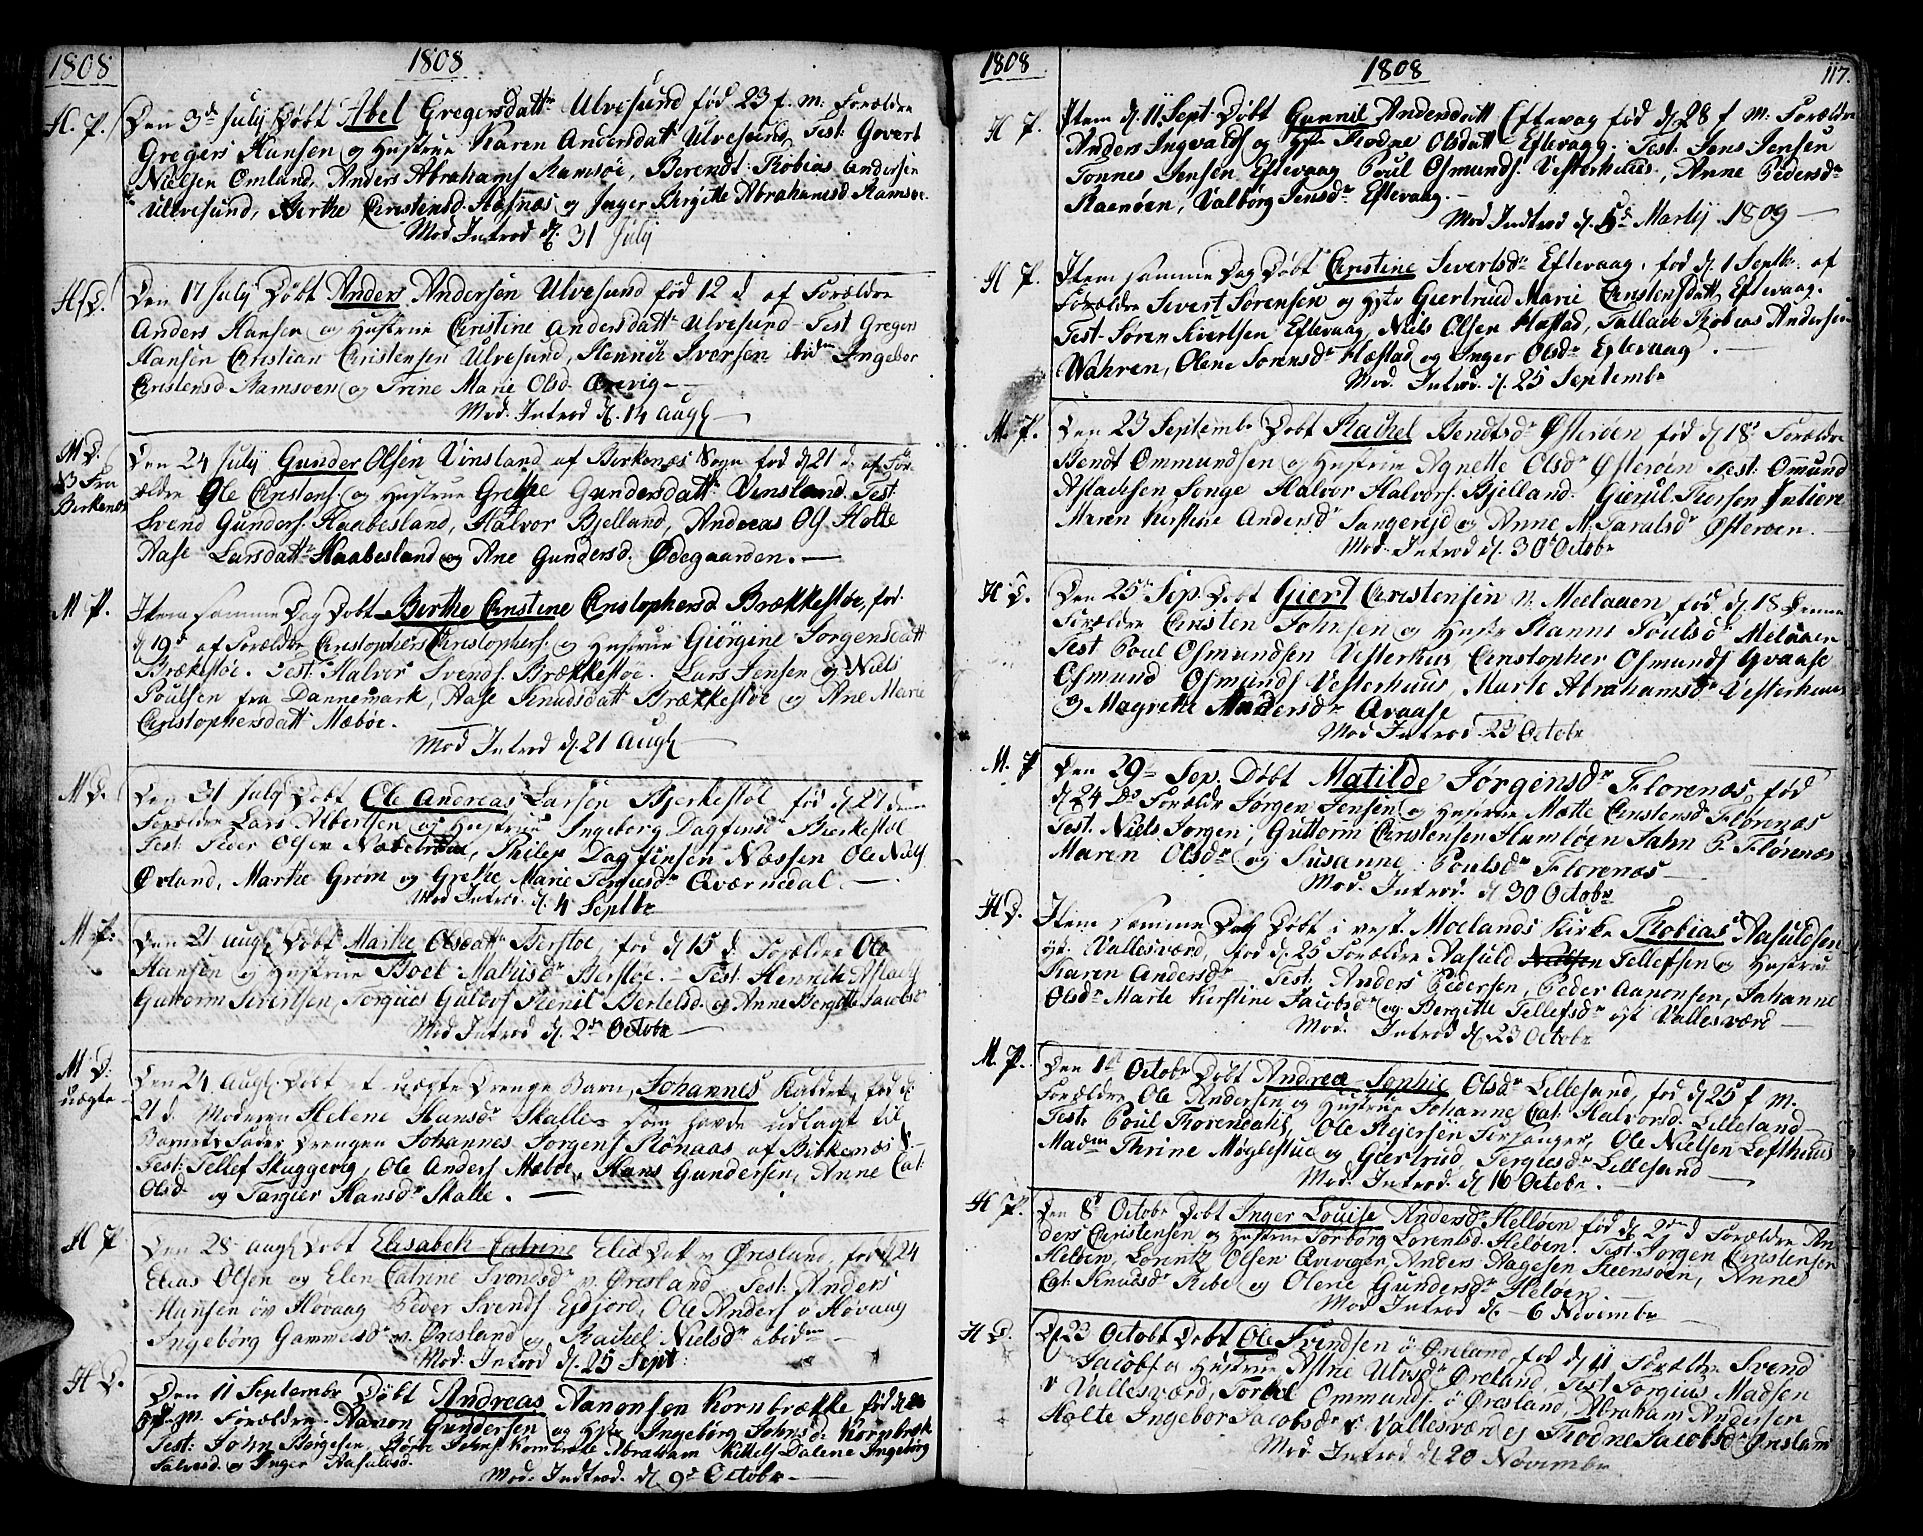 1808
1808
H. P.
Den 3de July Døbt Abel Gregersdattr Ulvesund fød 23 f. m: Forældre
Gregers Hansen og Hustrue Karen Andersdatt Ulvesund, Test: Govert
Nielsen Omland, Anders Abrahams Ramsøe, Berendt Tobias Andersen
Ulvesund, Berthe Christensd. Høfnæs og Inger Birgitte Abrahamsd Ramsøe
Mod Introd d. 31 July
H. D.
Den 17 July Døbt Anders Andersen Ulvesund fød 12 d af Forældre
Anders Hansen og Hustrue Christine Andersdatt Ulvesund Test Gregers
Hansen Christian Christensen Ulvesund, Henrich Iversen ibidm Ingebor
Christensd Ramsøen og Trine Marie Olsd Arevig
Mod. Introd d. 14 Augl
M D.
B Fra
Birkenæs
Den 24 July Gunder Olsen Vinsland af Birkenæs Sogn fød d 21 d. af For
ældre Ole Christens. og Hustrue Grethe Gundersdatt Vinsland Test
Svend Gunders. Haabesland, Halvor Bjelland, Andreas Ols Holte
Aase Larsdatt Haabesland og Ane Gundersd. Ødegaarden.
M P.
Item samme Dag Døbt Birthe Christine Christophersd Brækkestøe, fød
d 19d af Forældre Christophers Christophers. og Hustrue Giørgine Jørgensdatt
Brækestøe. Test: Halvor Svends. Brækkestøe. Lars Jensen og Niels
Poulsen fra Dannemark, Aase Knudsdatt Brækkestøe og Ane Marie
Christophersdatt Mæbøe.
Mod Introd d. 21 Augl
M D.
Den 31 July Døbt Ole Andreas Larsen Bjerkestøe fød d 27 denne
Forældre Lars Albertsen og Hustrue Ingeborg Dagfinsd Bierkestøe
Test: Peder Olsen, Philip Dagfinsen Næssen Ole Niels
Øvland, Marthe Grom og Grethe Marie Tergiesdr Qværnedal.
Mod Introd. d. 4 Septbr
M P.
Den 21 Augl Døbt Marthe Olsdattr Berstøe, fød d 15 d. Forældre Ole
Hansen og Hustrue Boel Mathisdr Berstøe. Test: Henrich Aslach
Guttorm Sivertsen, Torgius Gulovs Kenil Bertelsd. og Anne Bergitte Jacobsdr
Mod Introd d. 2den Octobr
M D.
uægte
Den 24 Augl. Døbt et uægte Drenge Barn, Johannes kaldet, fød d:
21 d. Moderen Helene Hansdr Skalle, som havde udlagt til
Barnets Fader Drengen Johannes Jørgens Rønaas af Birkenæs S.
Test: Tellef Skuggevig, Ole Anders Mæbøe, Hans Gundersen, Anne Cat:
Olsd. og Targier Hansdr Skalle.
H P
Den 28 Augl Døbt Elisabeth Catrine Elia Datt v Øresland, fød d 24
Elias Olsen og Elen Catrine Svendsdr v. Øresland, Test: Anders
Hansen øv Høvaag Peder Svends Eydjord, Ole Anders ø Høvaag
Ingebørg Gammelsdr v. Øresland og Rachel Nielsdr ibidm
Mod. Introd d. 25 Sept:
H D.
Den 11 Septembr Døbt Andreas Aanonsen Kornbrække fød d 20
f. M. Forældre Aanon Gundersen og Hstr Ingebørg Johnsdr Kornbræk
Test: John Børgesen, Børge Johns Kornbrøke Abraham Kittels Dalene Ingebørg
Salvesd. og Inger Aasuldsd.
Mod. Indtrod. d. 9de Octobr
1808
1808
117.
H P.
Item d. 11 Sept. Døbt Gunnil Andersdatt Eftevag fød d 28 f M. Forældre
Anders Ingvalds og Hstr Thodne Olsdatt Eftevagg. Test. Jens Jensen
Tonnes Jensen Eftevaag Poul Osmunds. Vesterhuus, Anne Pedersdr
Raenøen, Valbørg Jensdr Eftevaag.
Mod Indtrod d. 5de Martij 1809
H P.
Item samme Dag Døbt Christine Sivertsdr Eftevaag, fød d. 1 Septbr. af
Forældre Sivert Sørensen og Hstr Giertrud Marie Christensdatt Eftevaag.
Test. Søren Sivertsen Eftevaag, Niels Olsen Hæstad, Tallack Tobias Andersen
Wahren, Olene Sørensdr Hæstad og Inger Olsdr Eftevaag.
Mod. Introd. d. 25 Septembr
M. P.
Den 23 Septembr Døbt Rachel Bendtsdr Østerøen fød d 18d Forældre
Bendt Ommundsen og Hustrue Agnette Olsdr Østerøen Test: Omund
Asladsen Songe Halvor Halvors. Bjelland. Gierul Thorsen Intiere
Maren Kirstine Andersdr Sangereid og Anne M. Taralsdr Østerøen.
Mod. Introd d. 30d Octobr
H D.
Den 25de Sep. Døbt Giert Christensen v. Melauen fød d. 18 denne
Forældre Christen Johnsen og Hustr Hanne Poulsdr Melauen
Test Poul Osmundsen Vesterhus Christopher Osmunds Qvaase
Osmund Osmunds Vesterhuus, Marte Abrahamsdr Vesterhuus
og Magrethe Andersdr Qvaase
Mod Introd 23 Octobr
M. P
Den 29de Sep. Døbt Matilde Jørgensdr Florenæs, fød
d 24 Ds Forældr Jørgen Jensen og Hustrue Mætte Christensd Florenæs
Test. Niels Jørgen, Guttorm Christensen Humløen Jahn P. Flørenæs
Maren Olsdr og Susanne Poulsdr Florenæs
Mod. Introd. d 30 Octobr
H D.
Item samme Dag Døbt i vest. Moelands Kirke Thobias Aasuldsen
øst. Vallesværd, fød d. 25 Forældre Aasuld Tellefsen og Hustrue
Karen Andersdr. Test. Anders Pedersen, Peder Aanonsen, Jahanne
Olsdr Marte Kirstine Jacobsdr og Bergitte Tellefsdr øst Vallesværd
Mod. Introd d. 23 Octobr
M. P.
Den 1st Octobr Døbt Andrea Sophie Olsdr Lillesand, fød d. 25 f M.
Forældre Ole Andersen og Hustrue Johanne Cat. Halvorsd. Lillesand
Test: Poul Thorendahl, Ole Rejersen Forsanger, Ole Nielsen Lofthuus
Madm Thrine Møglestue og Giertrud Tergiesdr Lillesand
Mod. Introd. d 16 Octobr.
H P.
Den 8d Octobr Døbt Inger Louise Andersdr Helløen fød d 2den d Forældre An
ders Christensen og Hustrue Torborg Lorentsd. Heløen. Test. Jørgen Christensen
Heløen Lorentz Olsen Qviviger Anders Aagesen Steensøen, Anne
Cat: Knudsdr Ribe og Olene Gundersdr Heløen.
Mod Introd d. 6 Novembr
H D.
d. 23 Octobr Døbt Ole Svendsen ø Øresland, fød d. 11 Forældre Svend
Jacobs og Hustrue Astrie Ulvsdr Øresland, Test Torgius Madsen
v Vallesværd, Torkel Ommunds. ø Øresland, Abraham Andersen
Holte Ingebor Jacobsdr v. Vallesværd og Thodne Jacobsdr Øresland
Mod Introd d 20 Novembr